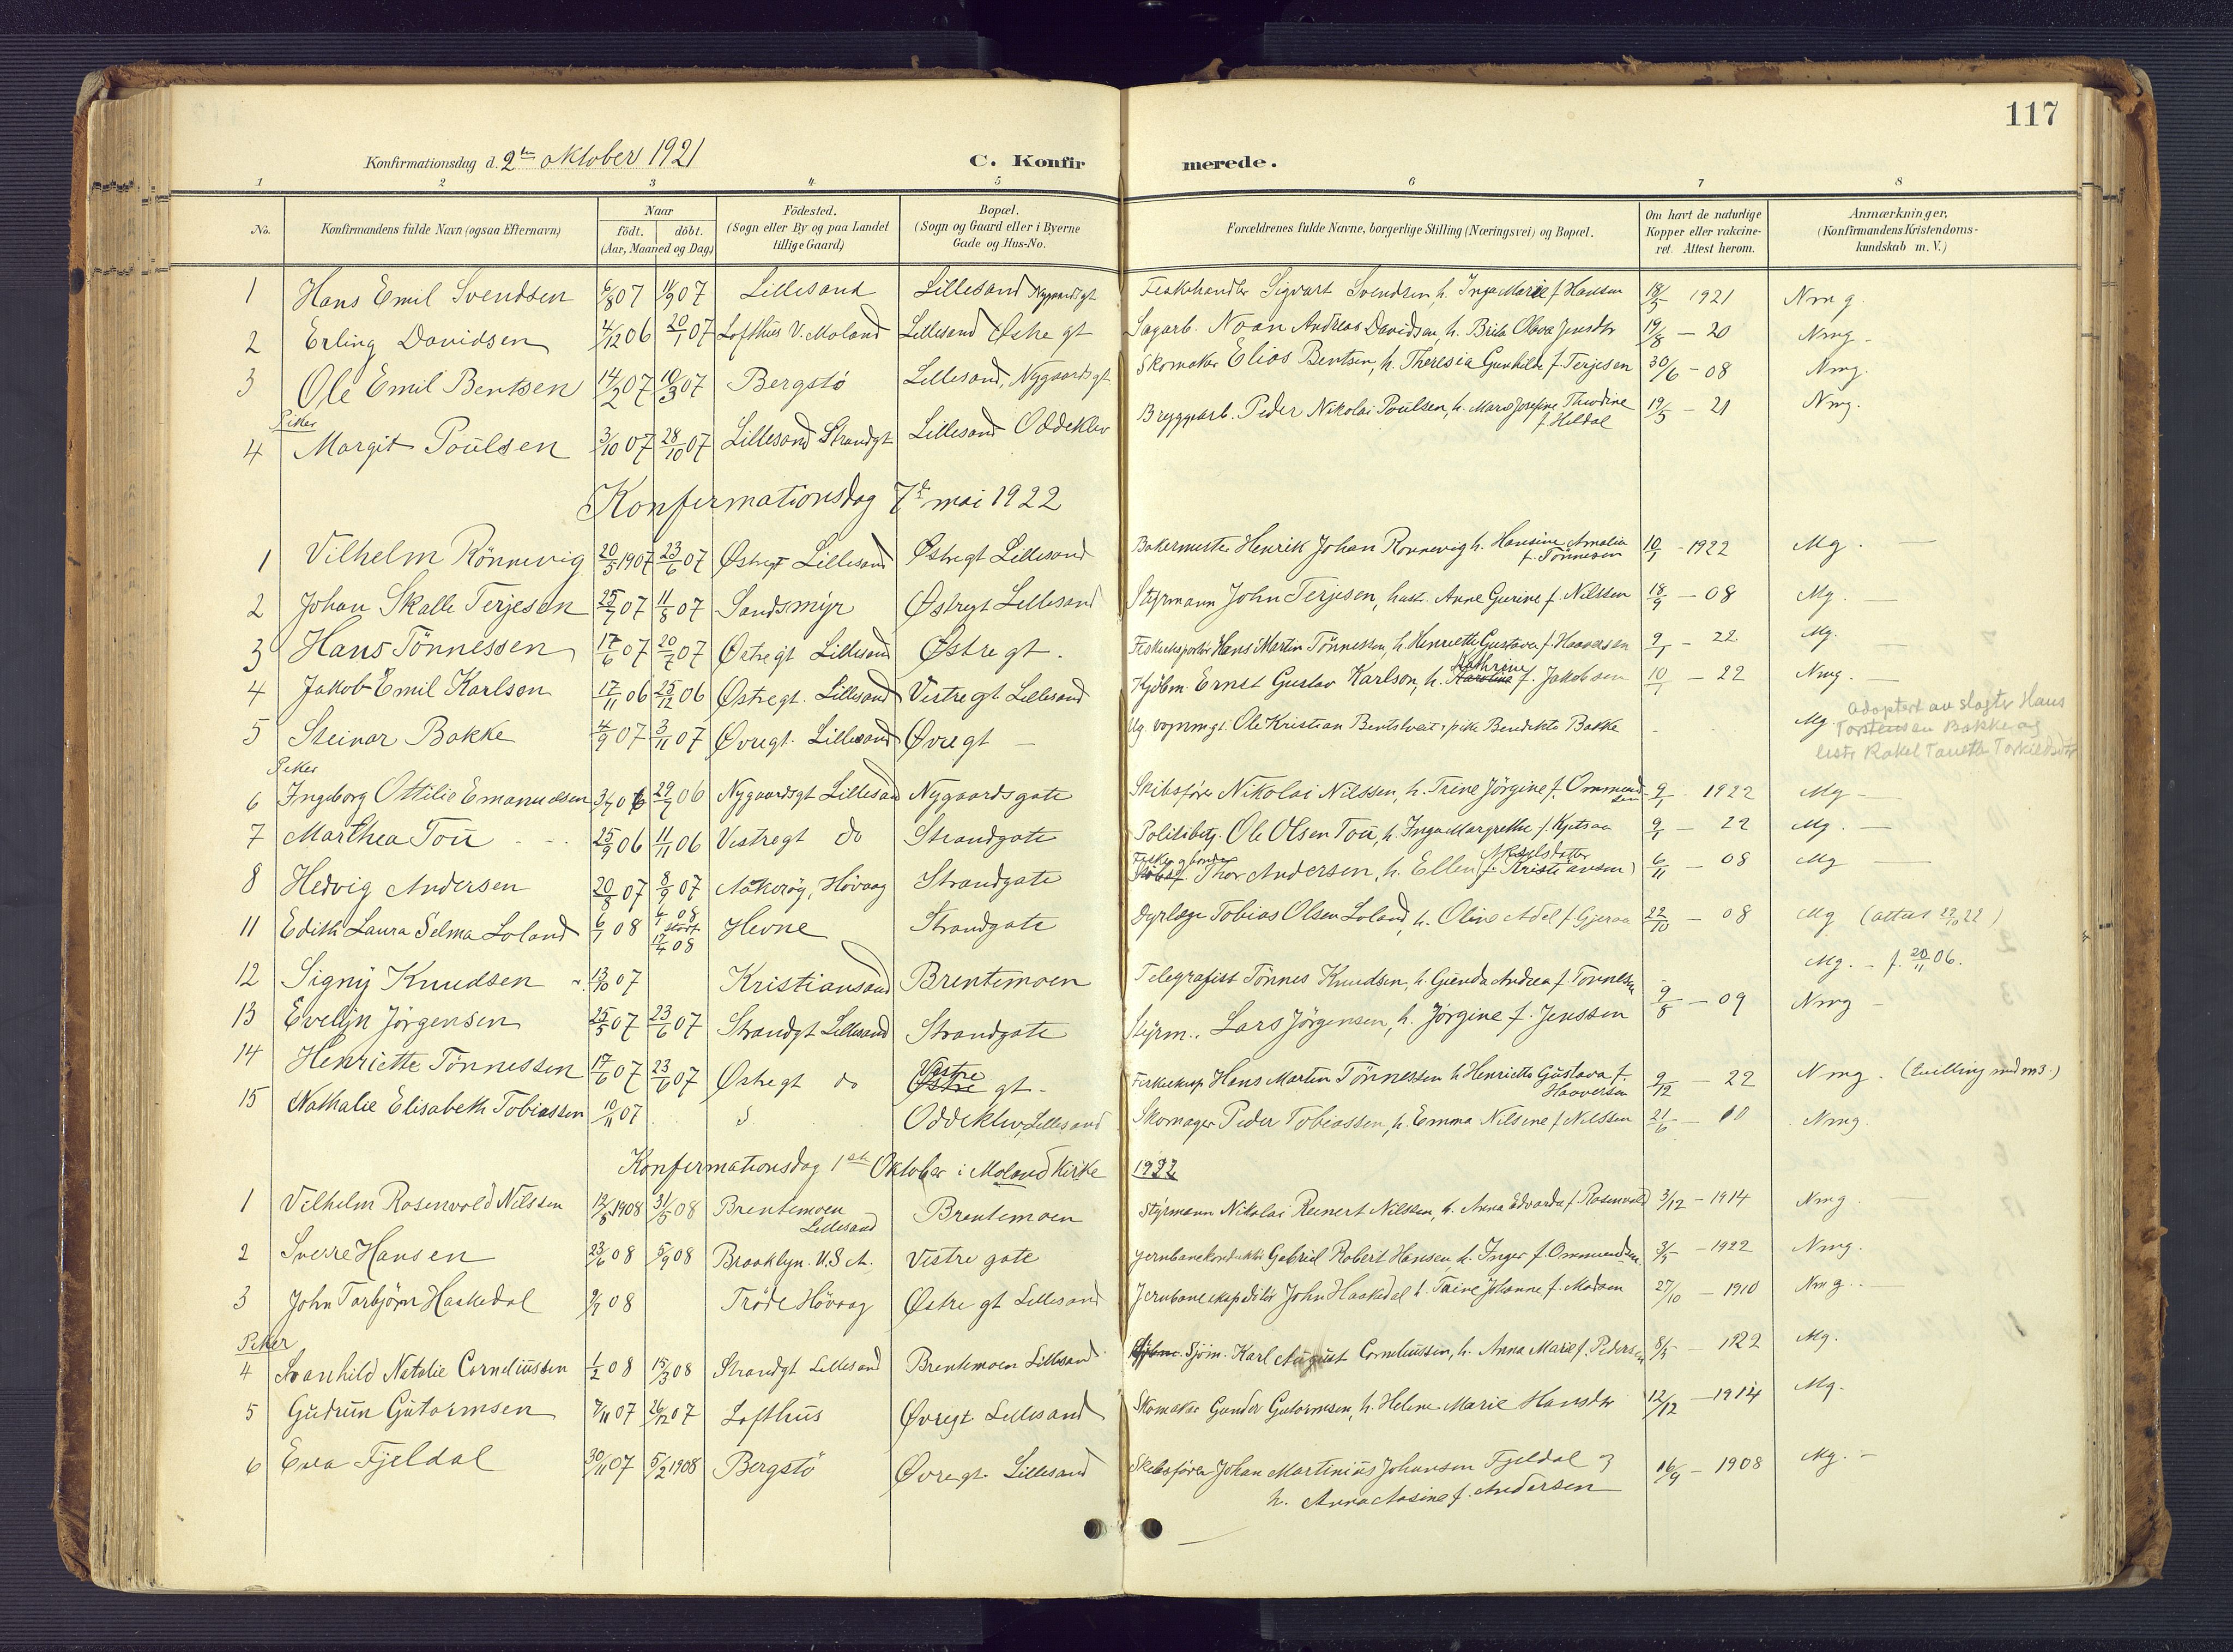 117
Konfirmationsdag d. 2den oktober 1921 C. Konfirmerede.
1 2 3 4 5 6 7 8
No. Konfirmandens fulde Navn (ogsaa Efternavn) Naar født. døbt. (Aar, Maaned og Dag) Födested. (Sogn eller By og paa Landet tillige Gaard) Bopæl. (Sogn og Gaard eller i Byerne Gade og Hus-No. Forældrenes fulde Navne, borgerlige Stilling (Næringsvei) og Bopæl. Om havt de naturlige Kopper eller vakcineret. Attest herom. Anmærkninger, (Konfirmandens Kristendomskundskab m. V.)
1 Hans Emil Svendsen 6/8 07 1/9 07 Lillesand Lillesand Nygaardsgt Fiskehandler Sigvart Svendsen, h. Inga Marie f. Hansen 18/5 1921 Nmg.
2 Erling Davidsen 4/12 06 20/1 07 Lofthus V. Moland Lillesand Østre gt Sagarb. Noan Andreas Davidsen, h. Brita Olava Jensdtr 19/8 - 20 Nmg.
3 Ole Emil Bentsen 14/2 07 10/3 07 Bergstö Lillesand, Nygaardsgt. Skomaker Elias Bentsen, h. Theresia Gunhilde f. Terjesen 30/6 - 08 Nmg.
Piker
4 Margit Poulsen 3/10 07 28/10 07 Lillesand Strandgt Lillesand Oddeklev Bryggearb. Peder Nikolai Poulsen, h. Marie Josefine Theodine f. Heldal 19/5 - 21 Nmg.
Konfirmationsdag 7de mai 1922
1 Vilhelm Rönnevig 20/5 1907 23/6 07 Østregt Lillesand Østregt Lillesand Bakermester Henrik Johan Ronnevig h. Hansine Amalia f. Tönnesen 10/1 - 1922 Mg.
2 Johan Skalle Terjesen 25/7 07 11/8 07 Sandsmyr Østregt Lillesand Styrmann John Terjesen, hust. Anne Gurine f. Nilssen 18/9 - 08 Mg.
3 Hans Tönnessen 17/6 07 20/7 07 Østregt Lillesand Østre gt. Fiskeexportör Hans Martin Tönnessen, h. Henriette Gustava f. Haaversen 9/1 - 22 Mg.
4 Jakob Emil Karlson 17/11 06 25/12 06 Østregt. Lillesand Vestre gt Lillesand Hjölm. Ernst Gustav Karlson, h. Karolina Kathrine f. Jakobsen 10/1 - 22 Nmg.
5 Steinar Bakke 4/9 07 3/11 07 Øvregt. Lillesand Øvregt Ug. Ole Kristian Bentsveit, pike Bendikte Bakke Mg. adoptert av slagter Hans Torstensen Bakke og Rakel
Piker
6 Ingeborg Ottilie Emanuelsen 3/7 06 29/7 06 Nygaardsgt Lillesand Nygaardsgate Skibsförer Nikolai Nilssen, h. Trine Jörgine f. Ommundsen 9/1 - 1922 Mg
7 Marthea Tou 25/9 06 11/11 06 Vestregt do Strandgate Politibetj. Ole Olsen Tou, h. Inga Margrethe f. Kjetsaa 9/1 - 22 Mg.
8 Hedvig Andersen 20/8 07 8/9 07 Aakerøy, Hövaag Strandgate Fisker og bonde Thor Andersen, h. Ellen f. Kristiansen 6/11 - 08 Mg
11 Edith Laura Selma Loland 6/1 08 12/4 08 Hevne Strandgate Dyrlæge Tobias Olsen Loland, h. Oline Adel f. Gjeraa 22/10 - 08 Mg (attest 29/10 22)
12 Signy Knudsen 13/10 07 Kristiansand Brentemoen Telegrafist Tönnes Knudsen, h. Gunda Andrea f. Tonnesen Mg. - f. 20/11 06.
13 Evelyn Jörgensen 25/5 07 23/6 07 Strandgt Lillesand Strandgate Styrm. Lars Jörgensen, h. Jörgine f. Jenssen 9/8 - 09 Nmg
14 Henriette Tönnessen 17/6 07 23/6 07 Østregt do Østre Vestre gt. Fiskeeksp Hans Martin Tönnessen h Henriette Gustava f. Haaversen 9/12 - 22 Nmg. (tvilling med n 3.)
15 Nathalie Elisabeth Tobiassen 10/11 07 Oddeklev, Lillesand Skomager Peder Tobiassen, h. Emma Nilsine f. Nilssen 21/6 - 10 Nmg.
Konfirmationsdag 1ste Oktober i Moland Kirke 1922
1 Vilhelm Rosenvold Nilssen 12/5 1908 31/5 08 Brentemoen Lillesand Brentemoen Styrmann Nikolai Reinert Nilssen, h. Anna Edvarda f. Rosenvold 3/12 - 1914 Nmg.
2 Sverre Hansen 23/6 08 5/9 08 Brooklyn. U.S.A. Vestre gate Jernbanekonduktör Gabriel Robert Hansen, h. Inger f. Ommundsen 3/5 - 1922 Nmg.
3 John Torbjörn Haakedal 9/7 08 Tröde Hövaag Østre gt Lillesand Jernbaneekspeditör John Haakedal h. Trine Johanne f. Madsen 27/10 - 1910 Nmg.
Piker
4 Svanhild Natalie Corneliussen 1/2 08 15/3 08 Strandgt Lillesand Brentemoen Lillesand Sjöm. Karl August Corneliussen, h. Anna Marie f. Pedersen 8/5 - 1922 Mg.
5 Gudrun Gutormsen 7/11 07 26/12 07 Lofthus Øvregt Lillesand Skomaker Gunder Gutormsen, h. Helene Marie Hansdtr 12/12 - 1914 Mg.
6 Eva Fjeldal 30/11 07 5/2 1908 Bergstö Øvregt. Lillesand Skibsförer Johan Martinius Johansen Fjeldal og h. Anna Aasine f. Andersen 16/9 - 1908 Mg.